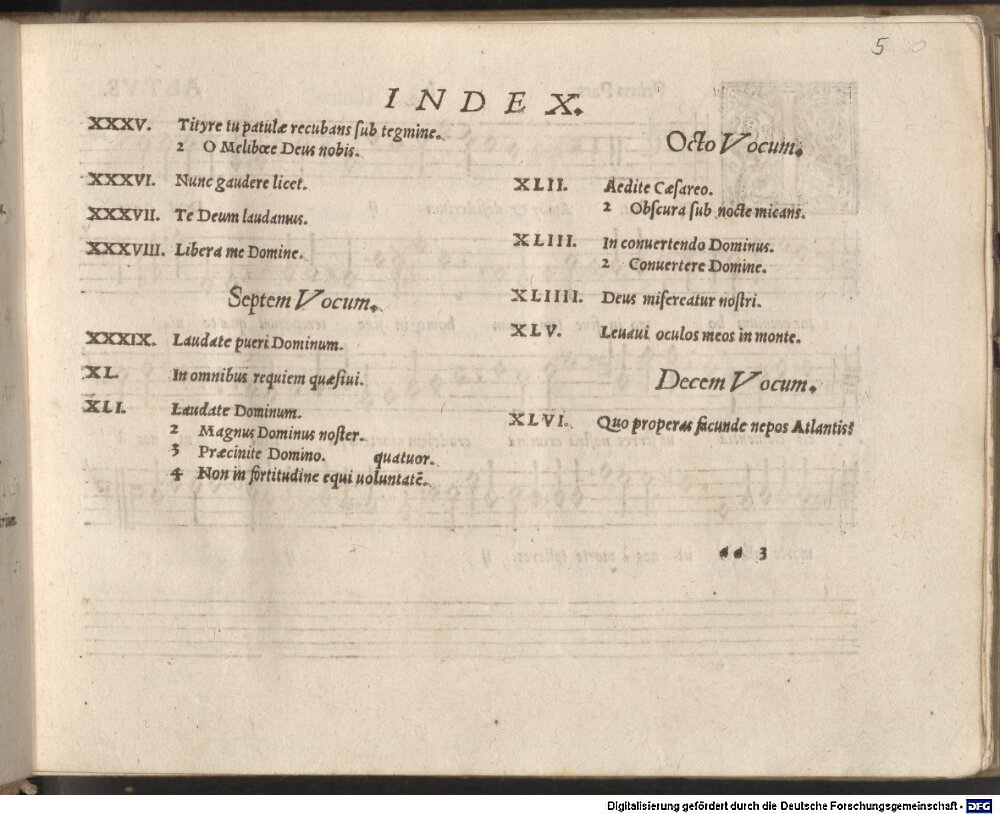 5
INDEX.
XXXV. Tityre tu patulæ recubans ſub tegmine.
2 O Melibœe Deus nobis.
XXXVI. Nunc gaudere licet.
XXXVII. Te Deum laudamus.
XXXVIII. Libera me Domine.
Septem Vocum.
XXXIX. Laudate pueri Dominum.
XL. In omnibus requiem quæſiui.
XLI. Laudate Dominum.
2 Magnus Dominus noſter.
3 Præcinite Domino. quatuor.
4 Non in fortitudine equi uoluntatē.
Octo Vocum.
XLII. Aedite Cæſareo.
2 Obſcura ſub nocte micans.
XLIII. In conuertendo Dominus.
2 Conuertere Domine.
XLIIII. Deus miſereatur noſtri.
XLV. Leuaui oculos meos in monte.
Decem Vocum.
XLVI. Quo properas facunde nepos Atlantis?
aa 3
Digitalisierung gefördert durch die Deutsche Forschungsgemeinschaft - DFG